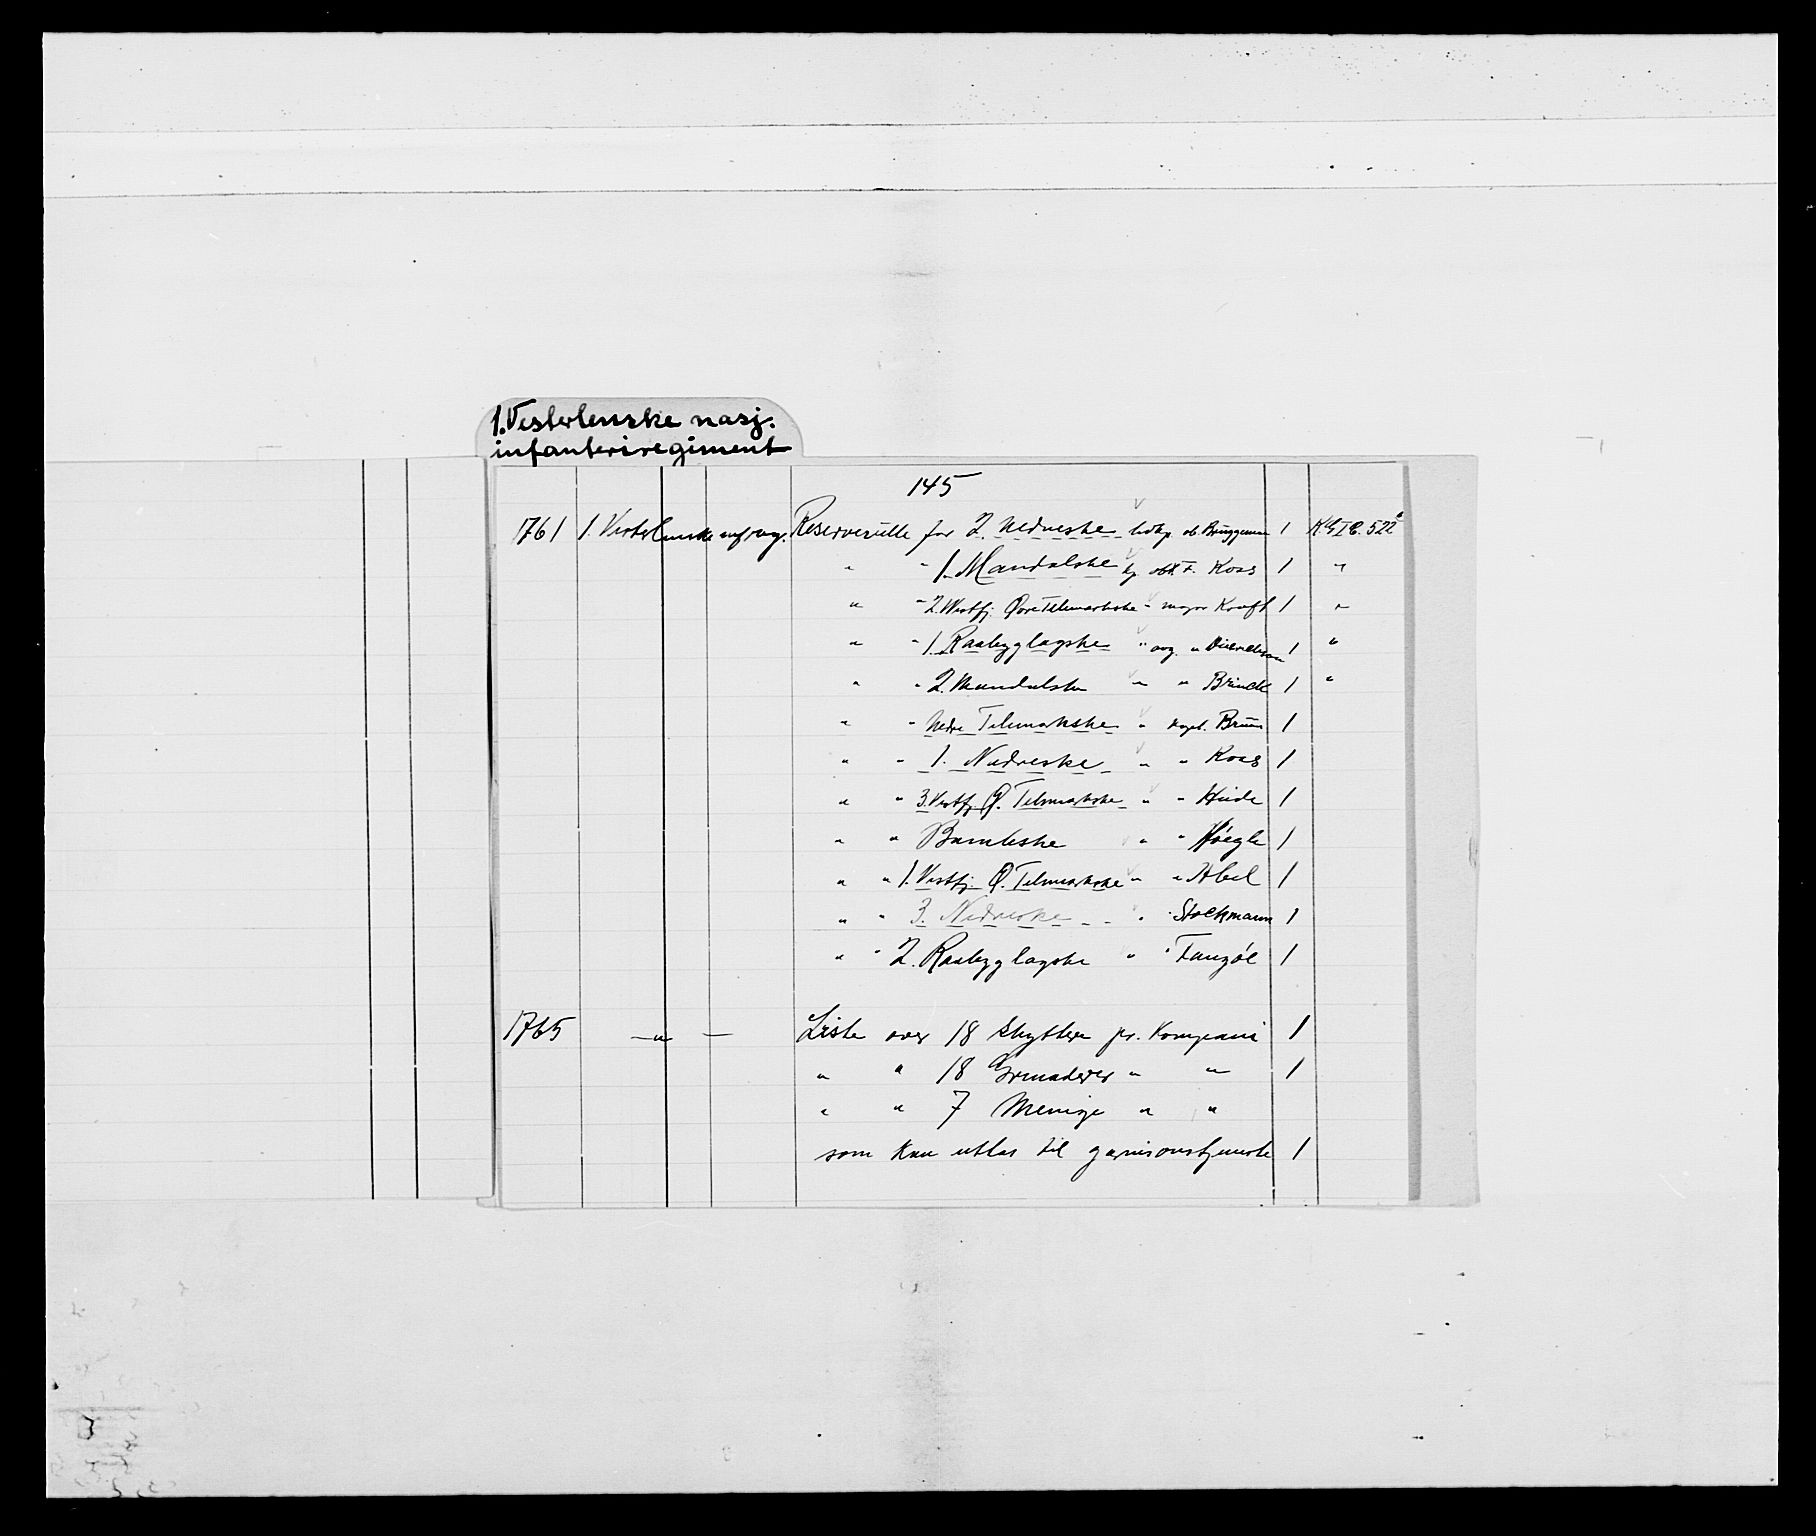 1. Vesterlenske nasj.
infanteriregiment
145
1761 1. Vesterlenske inf. reg. Reserverulle for 2. Nedneske livkp. ob. Brüggeman 1 K.G.I.C. 522
" " 1. Mandalske kp. obtl. F. Koss 1 "
" " 2. Vestfj. Øvre Telemarkske " major Kraft 1 "
" " 1. Raabyglagske " avg. " 1 "
" " 2. Mandalske " " Brinck 1 "
" " Nedre Telemakske " kapt. Bruun 1
" " 1. Nedneske " " Koss 1
" " 3. Vestfj. Ø. Telemarkske " " Hiide 1
" " Bamleske " " Höegh 1
" " 1. Vestfj. Ø. Telemarkske " " Abel 1
" " 3. Nedneske " " Stockmann 1
" " 2. Raabyglagske " " 1
1765 — " — Liste over 18 skyttere pr. Kompani 1
" " 18 Grenaderer " " 1
" " 7 Menige " "
som kan uttas til garnisonstjeneste 1